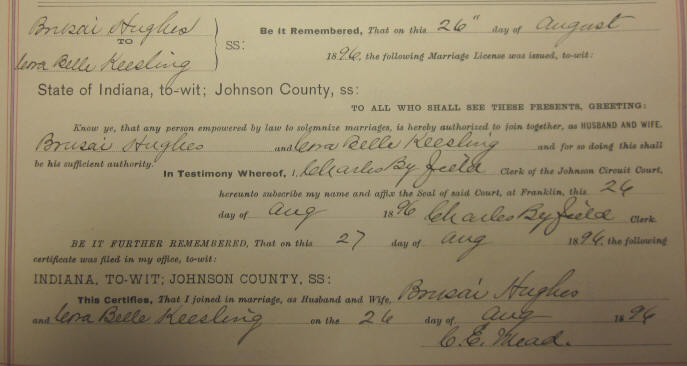 Brusai Hughes
TO
Cora Belle Keesling
SS:
Be it Remembered, That on this 26" day of August
1896, the following Marriage License was issued, to-wit:
State of Indiana, to-wit; Johnson County, ss:
TO ALL WHO SHALL SEE THESE PRESENTS, GREETING:
Know ye, that any person empowered by law to solemnize marriages, is hereby authorized to join together, as HUSBAND AND WIFE,
Brusai Hughes and Cora Belle Keesling and for so doing this shall
be his sufficient authority.
In Testimony Whereof, I, Charles Byfield Clerk of the Johnson Circuit Court,
hereunto subscribe my name and affix the Seal of said Court, at Franklin, this 26
day of Aug 1896 Charles Byfield Clerk.
BE IT FURTHER REMEMBERED, That on this 27 day of Aug 1896, the following
certificate was filed in my office, to-wit:
INDIANA, TO-WIT; JOHNSON COUNTY, SS:
This Certifies, That I joined in marriage, as Husband and Wife, Brusai Hughes
and Cora Belle Keesling on the 26 day of Aug 1896
C. E. Mead.